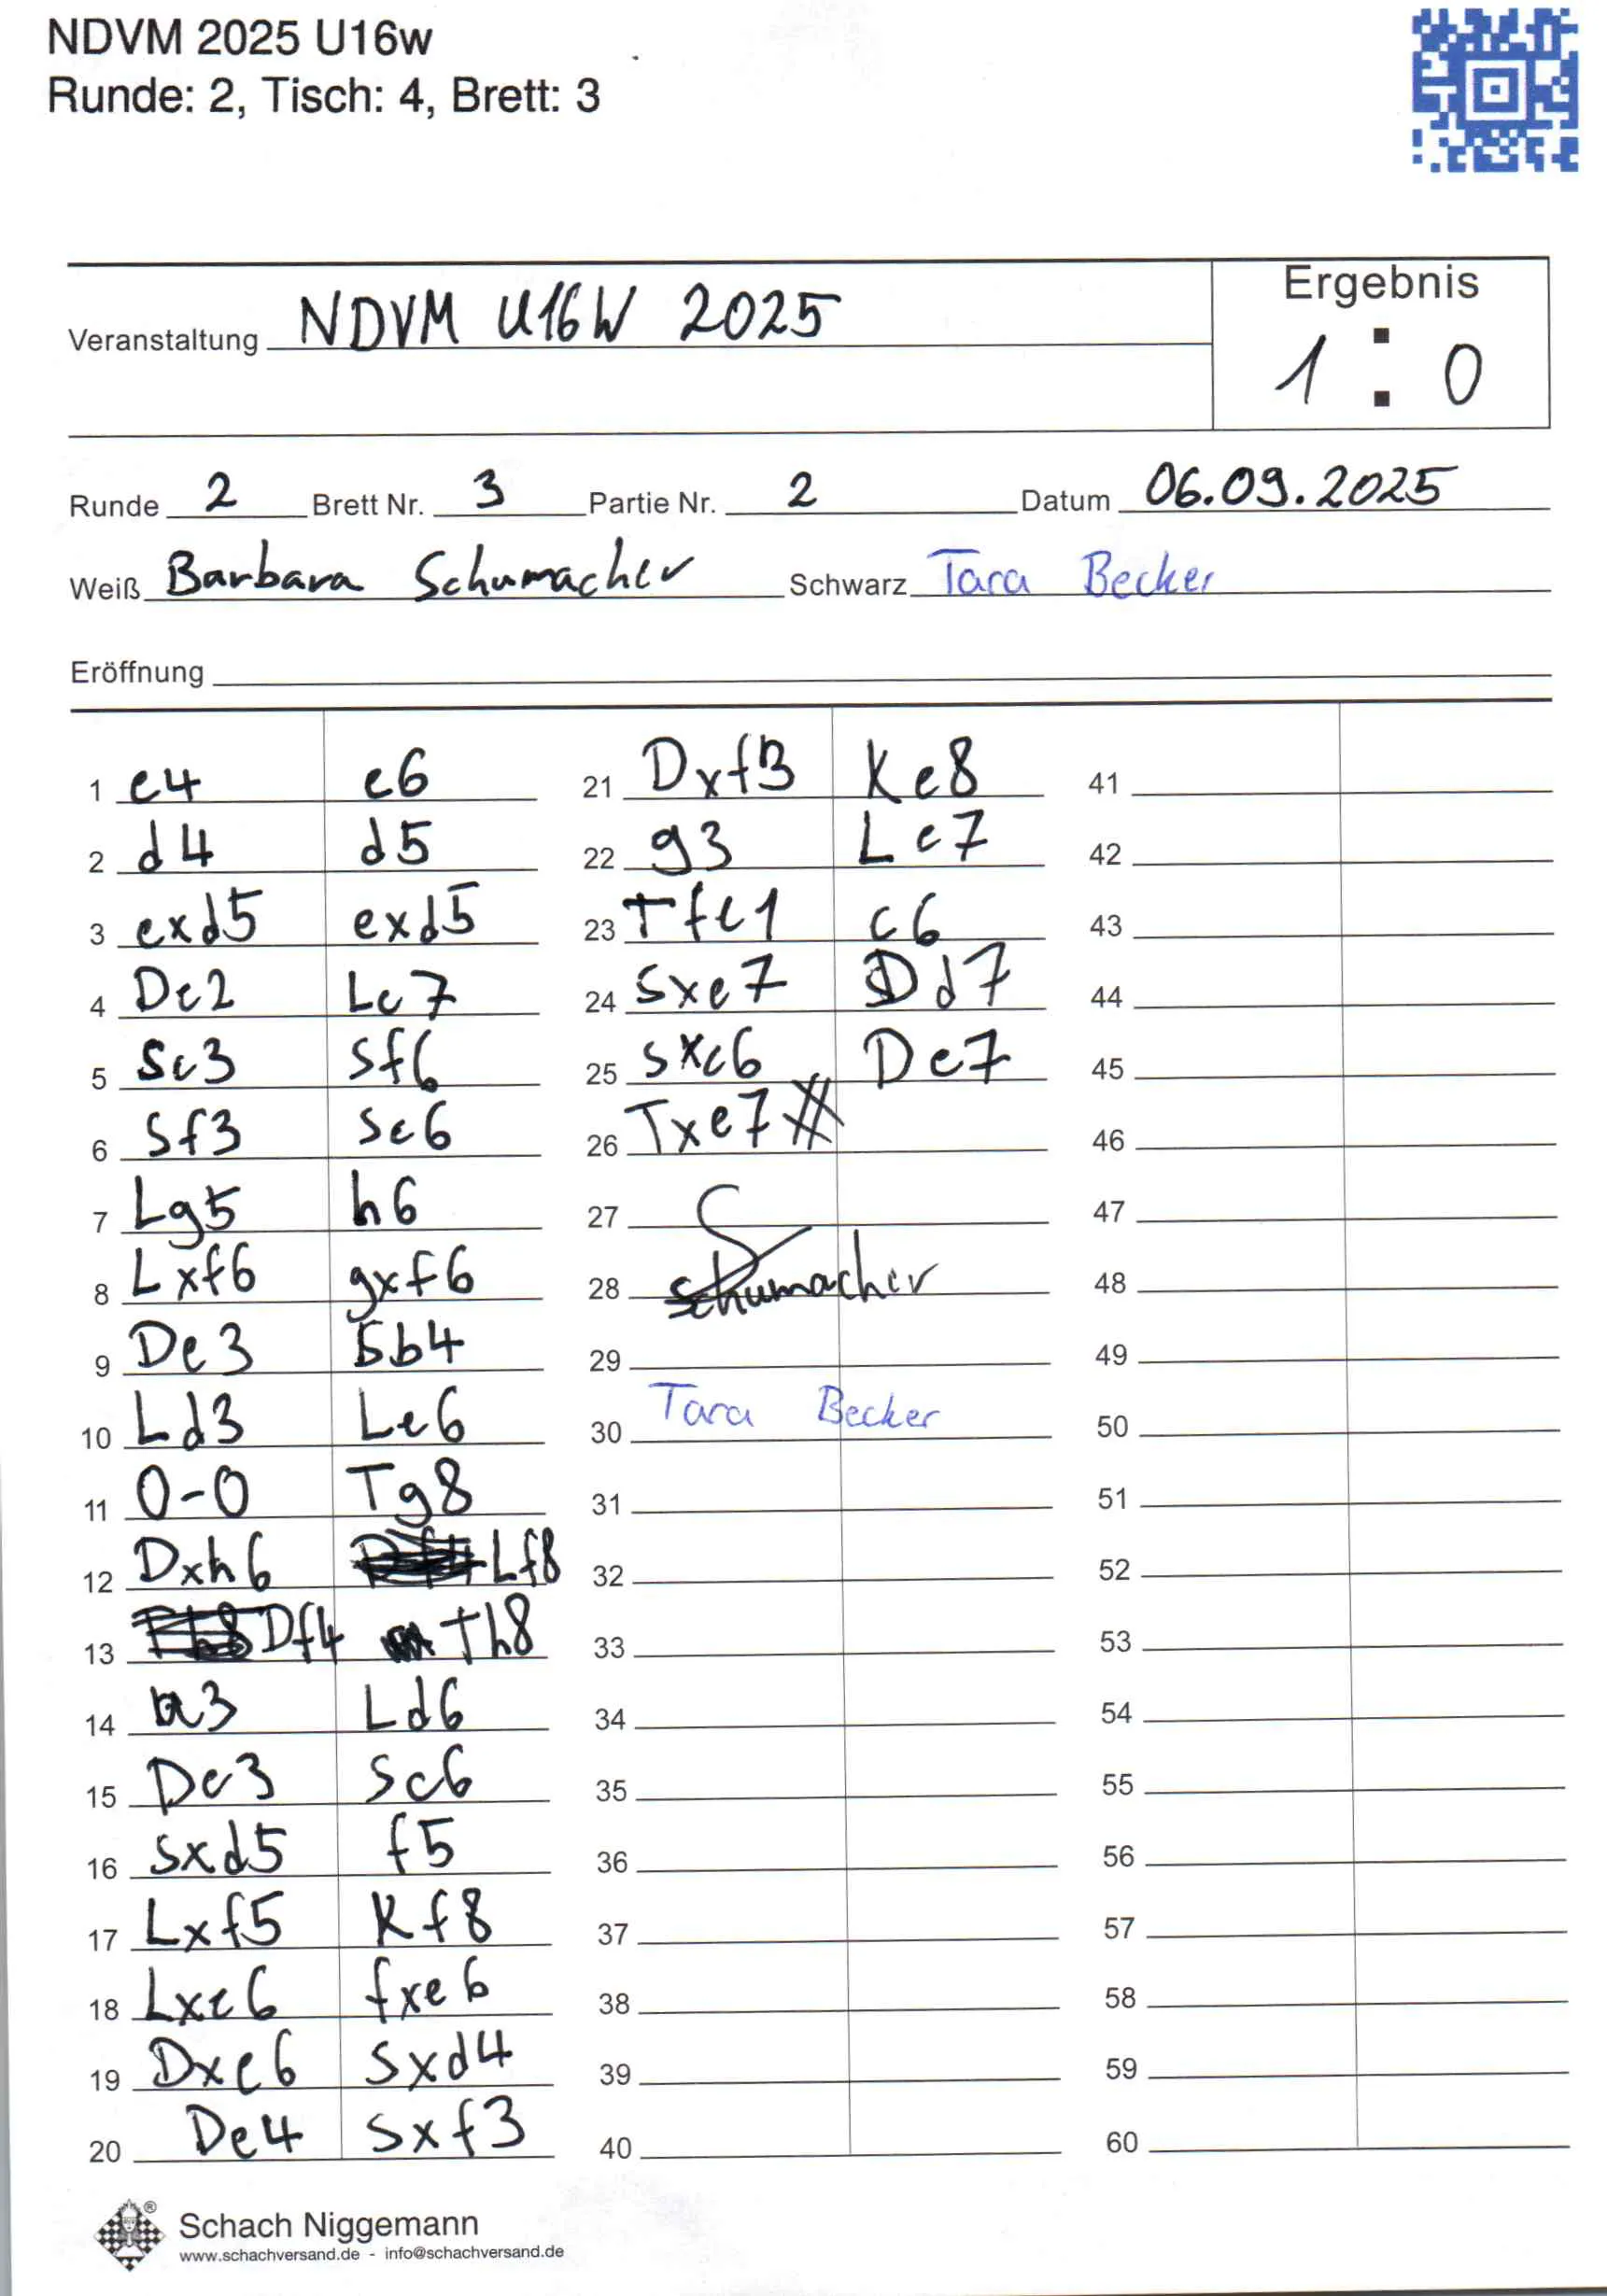 NDVM 2025 U16w
Runde: 2, Tisch: 4, Brett: 3
Ergebnis
Veranstaltung NDVM U16W 2025
1 : 0
Runde 2 Brett Nr. 3 Partie Nr. 2 Datum 06.09.2025
Weiß Barbara Schumacher Schwarz Tara Becker
Eröffnung
1 e4 e6
2 d4 d5
3 exd5 exd5
4 De2 Le7
5 Sc3 Sf6
6 Sf3 Sc6
7 Lg5 h6
8 Lxf6 gxf6
9 De3 Sb4
10 Ld3 Le6
11 0-0 Tg8
12 Dxh6 Lf8
13 Df4 Th8
14 a3 Ld6
15 De3 Sc6
16 Sxd5 f5
17 Lxf5 Kf8
18 Lxe6 fxe6
19 Dxe6 Sxd4
20 De4 Sxf3
21 Dxf3 Ke8
22 g3 Le7
23 Tfe1 c6
24 Sxe7 Dd7
25 Sxc6 De7
26 Txe7#
27
28 Schumacher
29
30 Tara Becker
31
32
33
34
35
36
37
38
39
40
41
42
43
44
45
46
47
48
49
50
51
52
53
54
55
56
57
58
59
60
Schach Niggemann
www.schachversand.de - info@schachversand.de